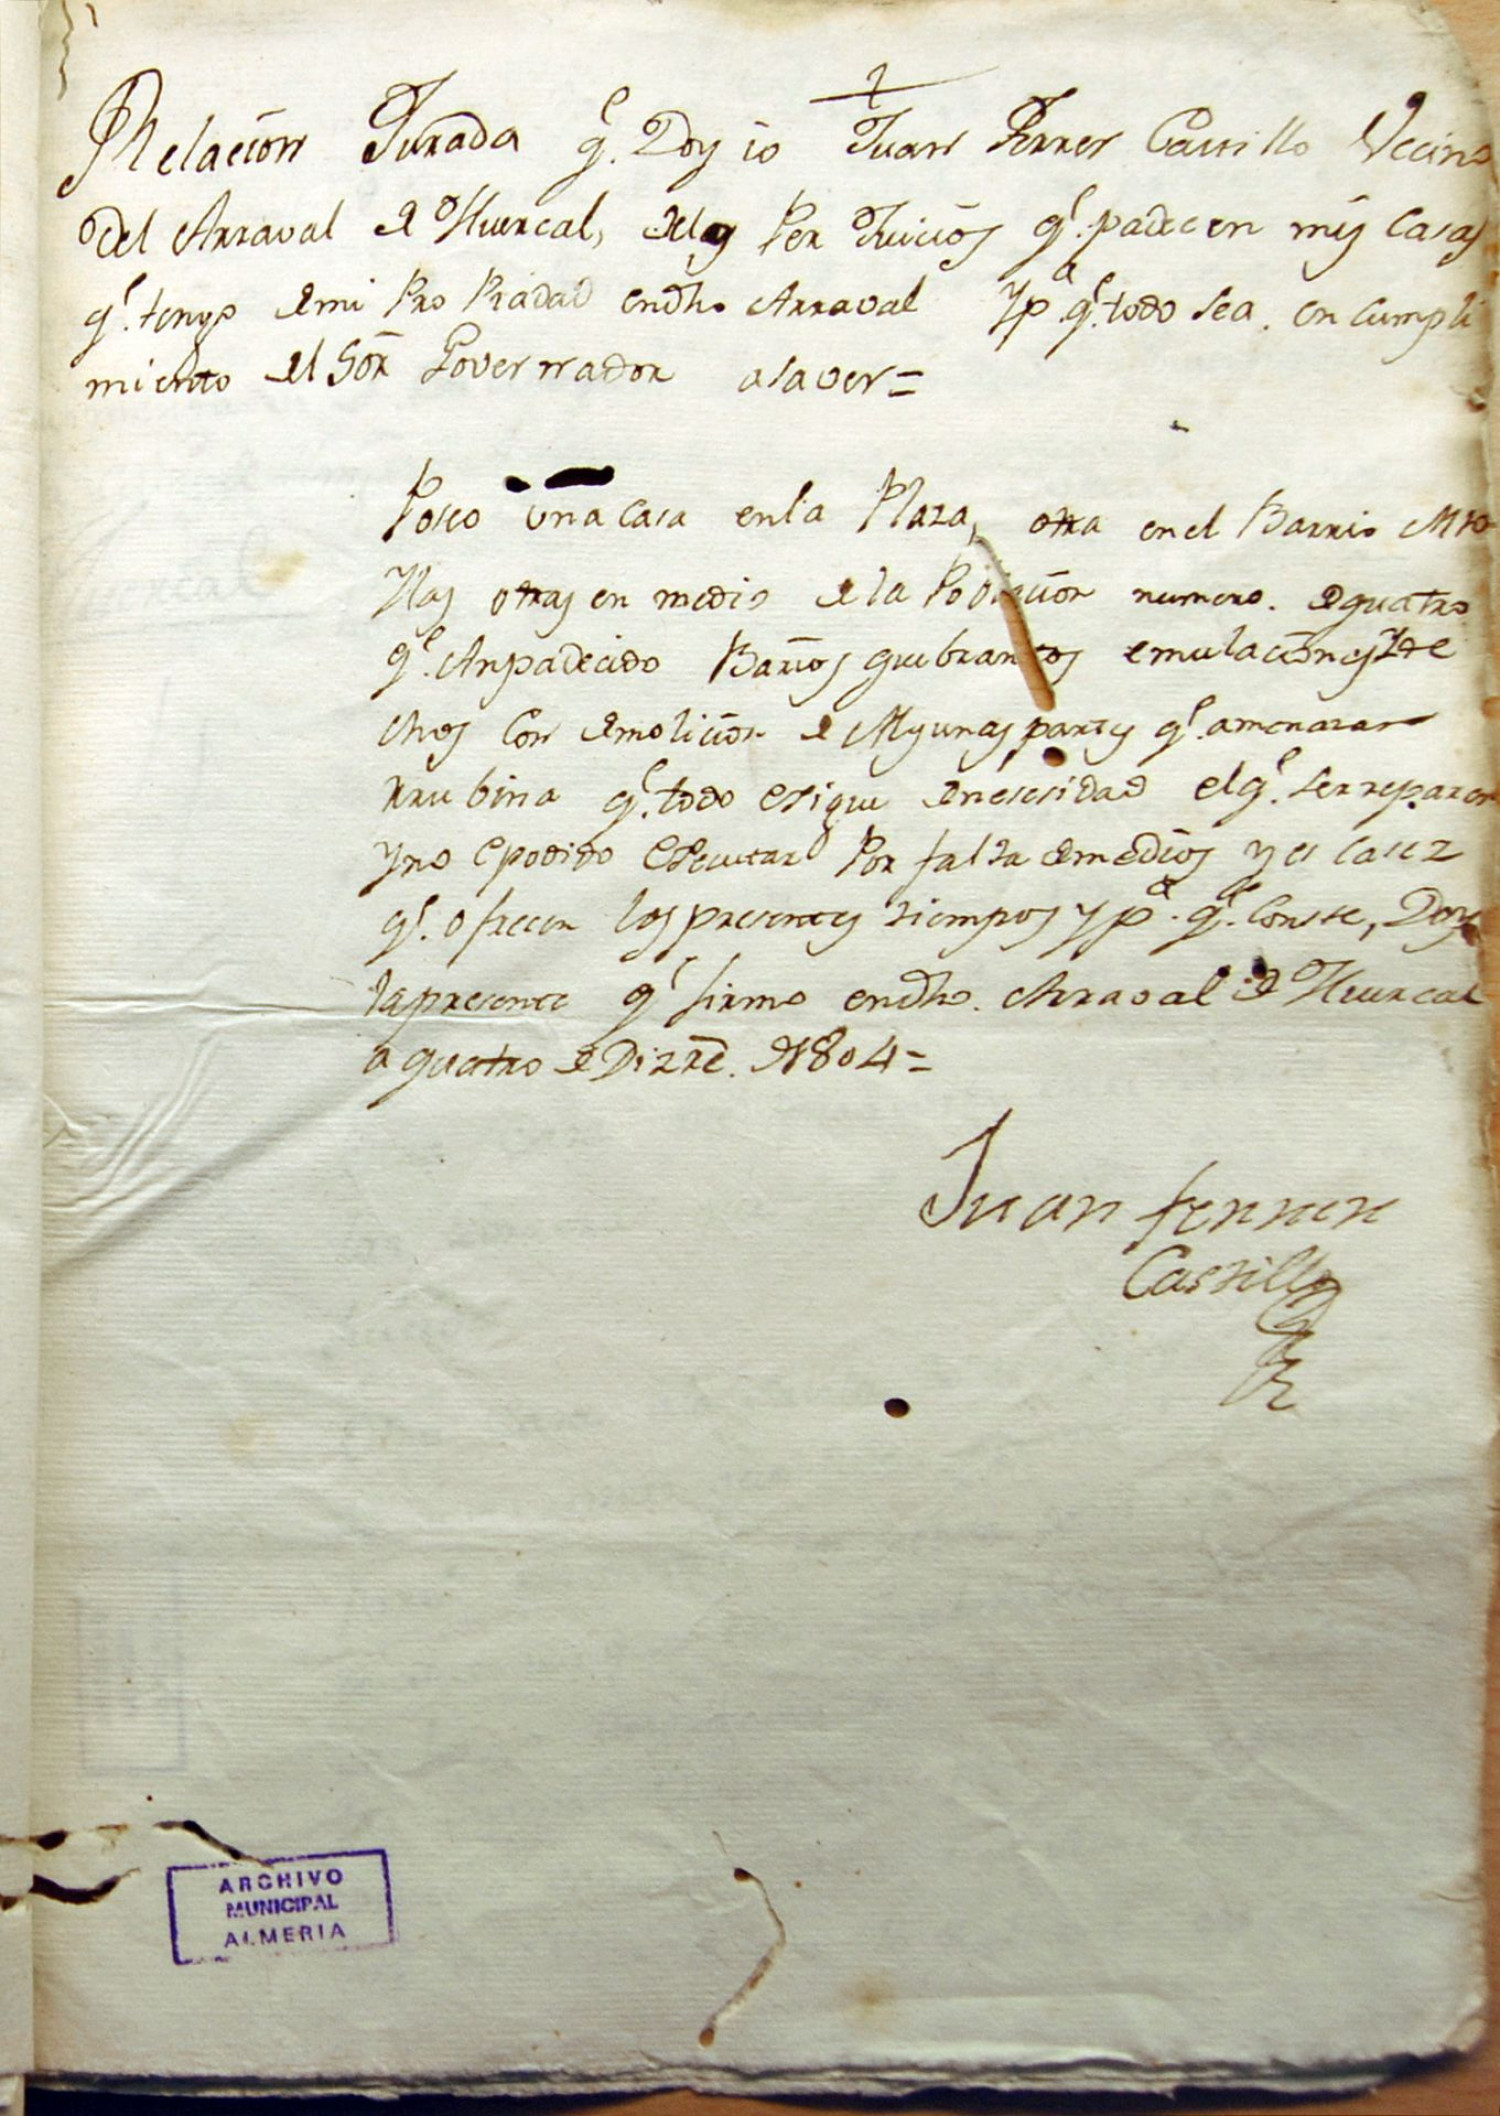 Relacion Jurada q.e Doy io Juan Ferrer Castillo Vecino
del Arraval de Huercal, delos Per Juicios q.e padecen mis Casas
q.e tengo de mi Pro Piadad en dho Arraval Yp.a q.e todo sea en cumpli
miento del Sor Governador asaver=
Poseo una Casa en la Plaza, otra en el Barrio
Ylas otras en medio de la Poblacion numero. de quatro
q.e Anpadecido Barios quebrantos emulaciones
chos Con demolicion de Algunas partes q.e amenazan
rrubina q.e todo esique de nesesidad el q.e se rreparen
yno e podido Esecutar Por falta de medios y es casez
q.e ofrecen los presentes tiempos y p.a q.e Conste, Doy
la presente q.e firmo en dho. Arraval de Huercal
a quatro de Dizre. de 1804=
Juan ferrer
Castillo
ARCHIVO
MUNICIPAL
ALMERIA